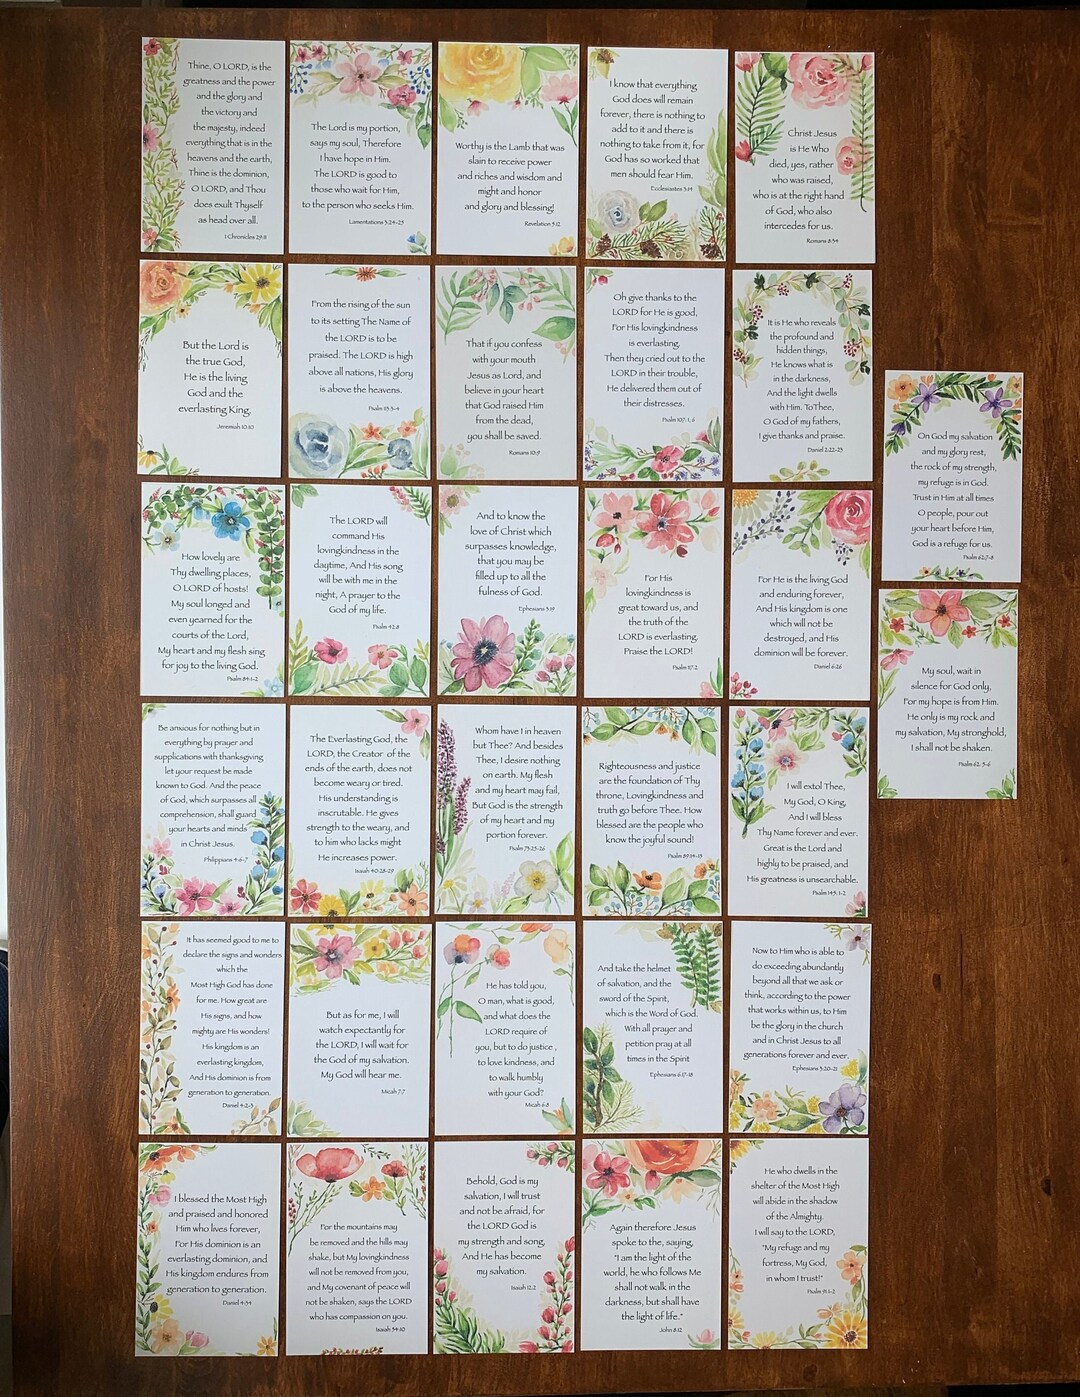 Thine, O LORD, is the
greatness and the power
and the glory and
the victory and
the majesty, indeed
everything that is in the
heavens and the earth,
Thine is the dominion,
O LORD, and Thou
does exult Thyself
as head over all.
1 Chronicles 29:11
The Lord is my portion,
says my soul, Therefore
I have hope in Him.
The LORD is good to
those who wait for Him,
to the person who seeks Him.
Lamentations 3:24-25
Worthy is the Lamb that was
slain to receive power
and riches and wisdom and
might and honor
and glory and blessing!
Revelation 5:12
I know that everything
God does will remain
forever, there is nothing to
add to it and there is
nothing to take from it, for
God has so worked that
men should fear Him.
Ecclesiastes 3:14
Christ Jesus
is He Who
died, yes, rather
who was raised,
who is at the right hand
of God, who also
intercedes for us.
Romans 8:34
But the Lord is
the true God,
He is the living
God and the
everlasting King.
Jeremiah 10:10
From the rising of the sun
to its setting The Name of
the LORD is to be
praised. The LORD is high
above all nations, His glory
is above the heavens.
Psalm 113:3-4
That if you confess
with your mouth
Jesus as Lord, and
believe in your heart
that God raised Him
from the dead,
you shall be saved.
Romans 10:9
Oh give thanks to the
LORD for He is good,
For His lovingkindness
is everlasting.
Then they cried out to the
LORD in their trouble,
He delivered them out of
their distresses.
Psalm 107:1, 6
It is He who reveals
the profound and
hidden things,
He knows what is
in the darkness,
And the light dwells
with Him. To Thee,
O God of my fathers,
I give thanks and praise.
Daniel 2:22-23
On God my salvation
and my glory rest,
the rock of my strength,
my refuge is in God.
Trust in Him at all times
O people, pour out
your heart before Him,
God is a refuge for us.
Psalm 62:7-8
How lovely are
Thy dwelling places,
O LORD of hosts!
My soul longed and
even yearned for the
courts of the Lord,
My heart and my flesh sing
for joy to the living God.
Psalm 84:1-2
The LORD will
command His
lovingkindness in the
daytime, And His song
will be with me in the
night, A prayer to the
God of my life.
Psalm 42:8
And to know the
love of Christ which
surpasses knowledge,
that you may be
filled up to all the
fulness of God.
Ephesians 3:19
For His
lovingkindness is
great toward us, and
the truth of the
LORD is everlasting.
Praise the LORD!
Psalm 117:2
For He is the living God
and enduring forever,
And His kingdom is one
which will not be
destroyed, and His
dominion will be forever.
Daniel 6:26
My soul, wait in
silence for God only,
For my hope is from Him.
He only is my rock and
my salvation, My stronghold,
I shall not be shaken.
Psalm 62: 5-6
Be anxious for nothing but in
everything by prayer and
supplications with thanksgiving
let your request be made
known to God. And the peace
of God, which surpasses all
comprehension, shall guard
your hearts and minds
in Christ Jesus.
Philippians 4:6-7
The Everlasting God, the
LORD, the Creator of the
ends of the earth, does not
become weary or tired.
His understanding is
inscrutable. He gives
strength to the weary, and
to him who lacks might
He increases power.
Isaiah 40:28-29
Whom have I in heaven
but Thee? And besides
Thee, I desire nothing
on earth. My flesh
and my heart may fail,
But God is the strength
of my heart and my
portion forever.
Psalm 73:25-26
Righteousness and justice
are the foundation of Thy
throne, Lovingkindness and
truth go before Thee. How
blessed are the people who
know the joyful sound!
Psalm 89:14-15
I will extol Thee,
My God, O King,
And I will bless
Thy Name forever and ever.
Great is the Lord and
highly to be praised, and
His greatness is unsearchable.
Psalm 145:1-2
It has seemed good to me to
declare the signs and wonders
which the
Most High God has done
for me. How great are
His signs, and how
mighty are His wonders!
His kingdom is an
everlasting kingdom,
And His dominion is from
generation to generation.
Daniel 4:2-3
But as for me, I will
watch expectantly for
the LORD, I will wait for
the God of my salvation.
My God will hear me.
Micah 7:7
He has told you,
O man, what is good,
and what does the
LORD require of
you, but to do justice ,
to love kindness, and
to walk humbly
with your God?
Micah 6:8
And take the helmet
of salvation, and the
sword of the Spirit,
which is the Word of God.
With all prayer and
petition pray at all
times in the Spirit
Ephesians 6:17-18
Now to Him who is able to
do exceeding abundantly
beyond all that we ask or
think, according to the power
that works within us, to Him
be the glory in the church
and in Christ Jesus to all
generations forever and ever.
Ephesians 3:20-21
I blessed the Most High
and praised and honored
Him who lives forever,
For His dominion is an
everlasting dominion, and
His kingdom endures from
generation to generation.
Daniel 4:34
For the mountains may
be removed and the hills may
shake, but My lovingkindness
will not be removed from you,
and My covenant of peace will
not be shaken, says the LORD
who has compassion on you.
Isaiah 54:10
Behold, God is my
salvation, I will trust
and not be afraid, for
the LORD God is
my strength and song,
And He has become
my salvation.
Isaiah 12:2
Again therefore Jesus
spoke to the, saying,
"I am the light of the
world, he who follows Me
shall not walk in the
darkness, but shall have
the light of life."
John 8:12
He who dwells in the
shelter of the Most High
will abide in the shadow
of the Almighty.
I will say to the LORD,
"My refuge and my
fortress, My God,
in whom I trust!"
Psalm 91:1-2